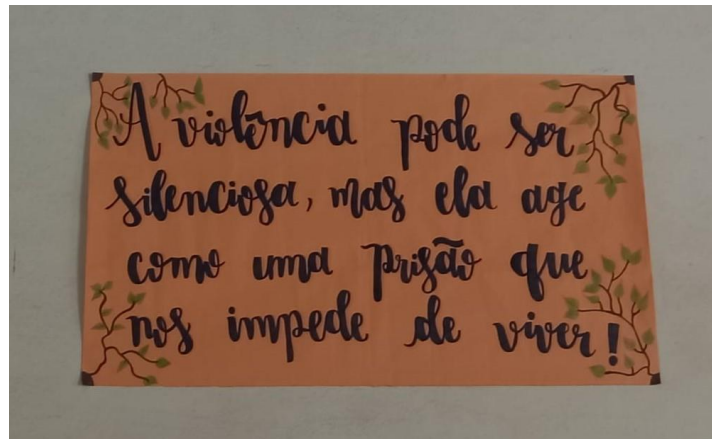 A violência pode ser
silenciosa, mas ela age
como uma prisão que
nos impede de viver!